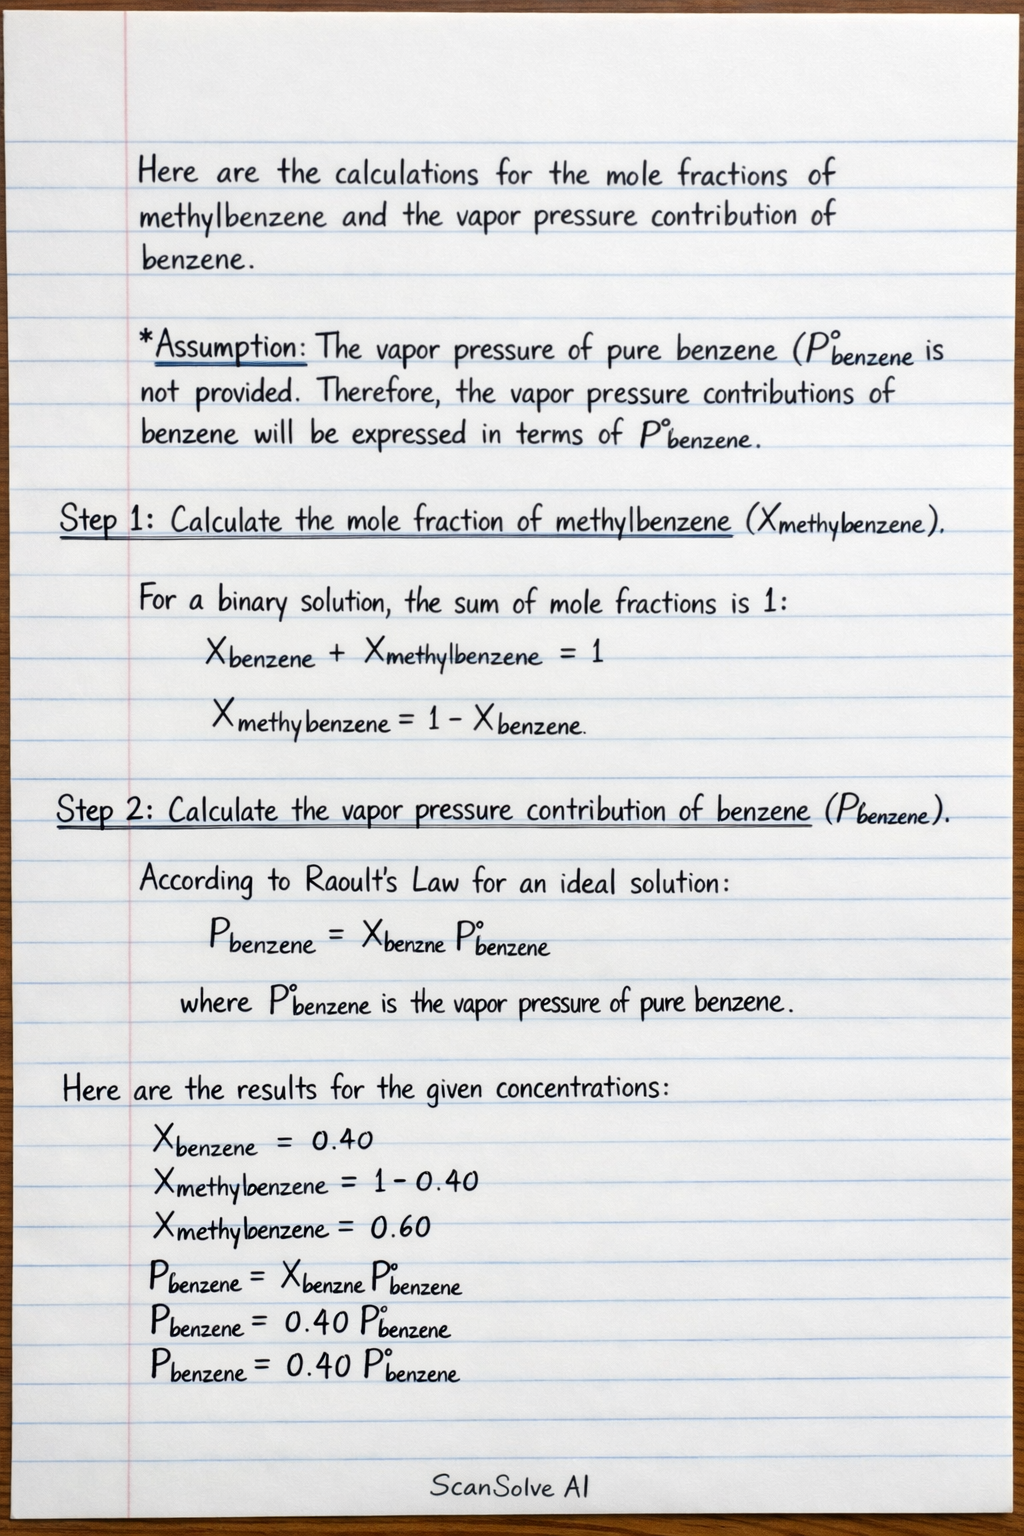 Here are the calculations for the mole fractions of
methylbenzene and the vapor pressure contribution of
benzene.
*Assumption: The vapor pressure of pure benzene (P°benzene is
not provided. Therefore, the vapor pressure contributions of
benzene will be expressed in terms of P°benzene.
Step 1: Calculate the mole fraction of methylbenzene (Xmethybenzene).
For a binary solution, the sum of mole fractions is 1:
Xbenzene + Xmethylbenzene = 1
Xmethybenzene = 1 - Xbenzene.
Step 2: Calculate the vapor pressure contribution of benzene (Pbenzene).
According to Raoult's Law for an ideal solution:
Pbenzene = Xbenzne P°benzene
where P°benzene is the vapor pressure of pure benzene.
Here are the results for the given concentrations:
Xbenzene = 0.40
Xmethylbenzene = 1 - 0.40
Xmethylbenzene = 0.60
Pbenzene = Xbenzne P°benzene
Pbenzene = 0.40 P°benzene
Pbenzene = 0.40 P°benzene
ScanSolve AI